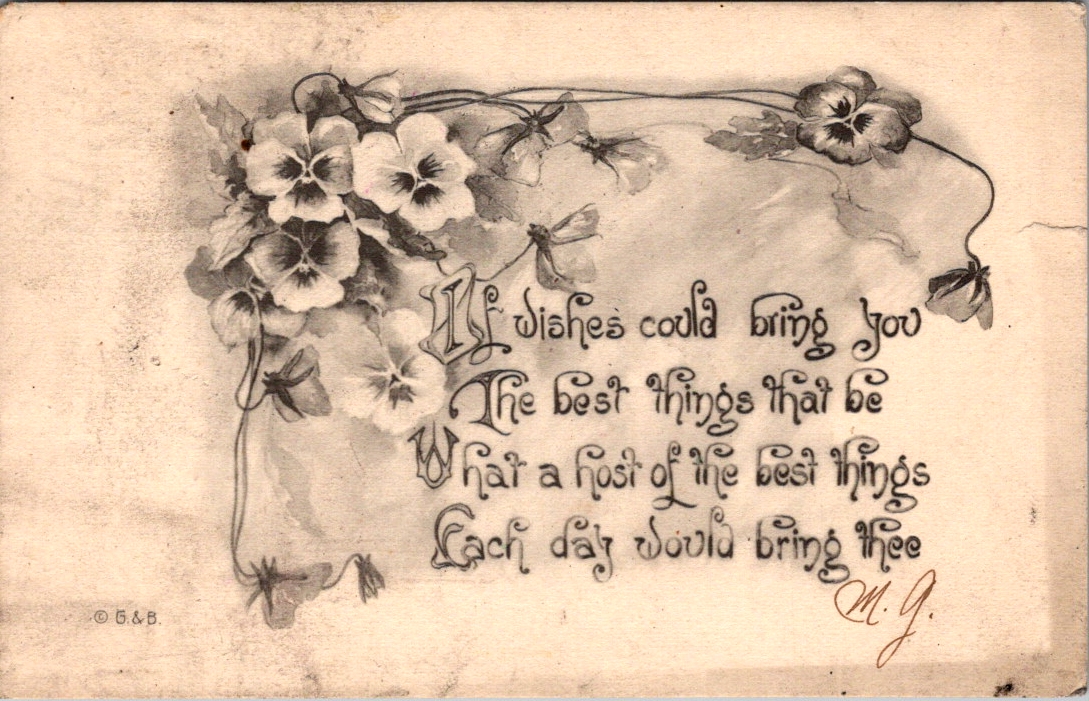 If wishes could bring you
The best things that be
What a host of the best things
Each day would bring thee
M. G.
© G. & B.